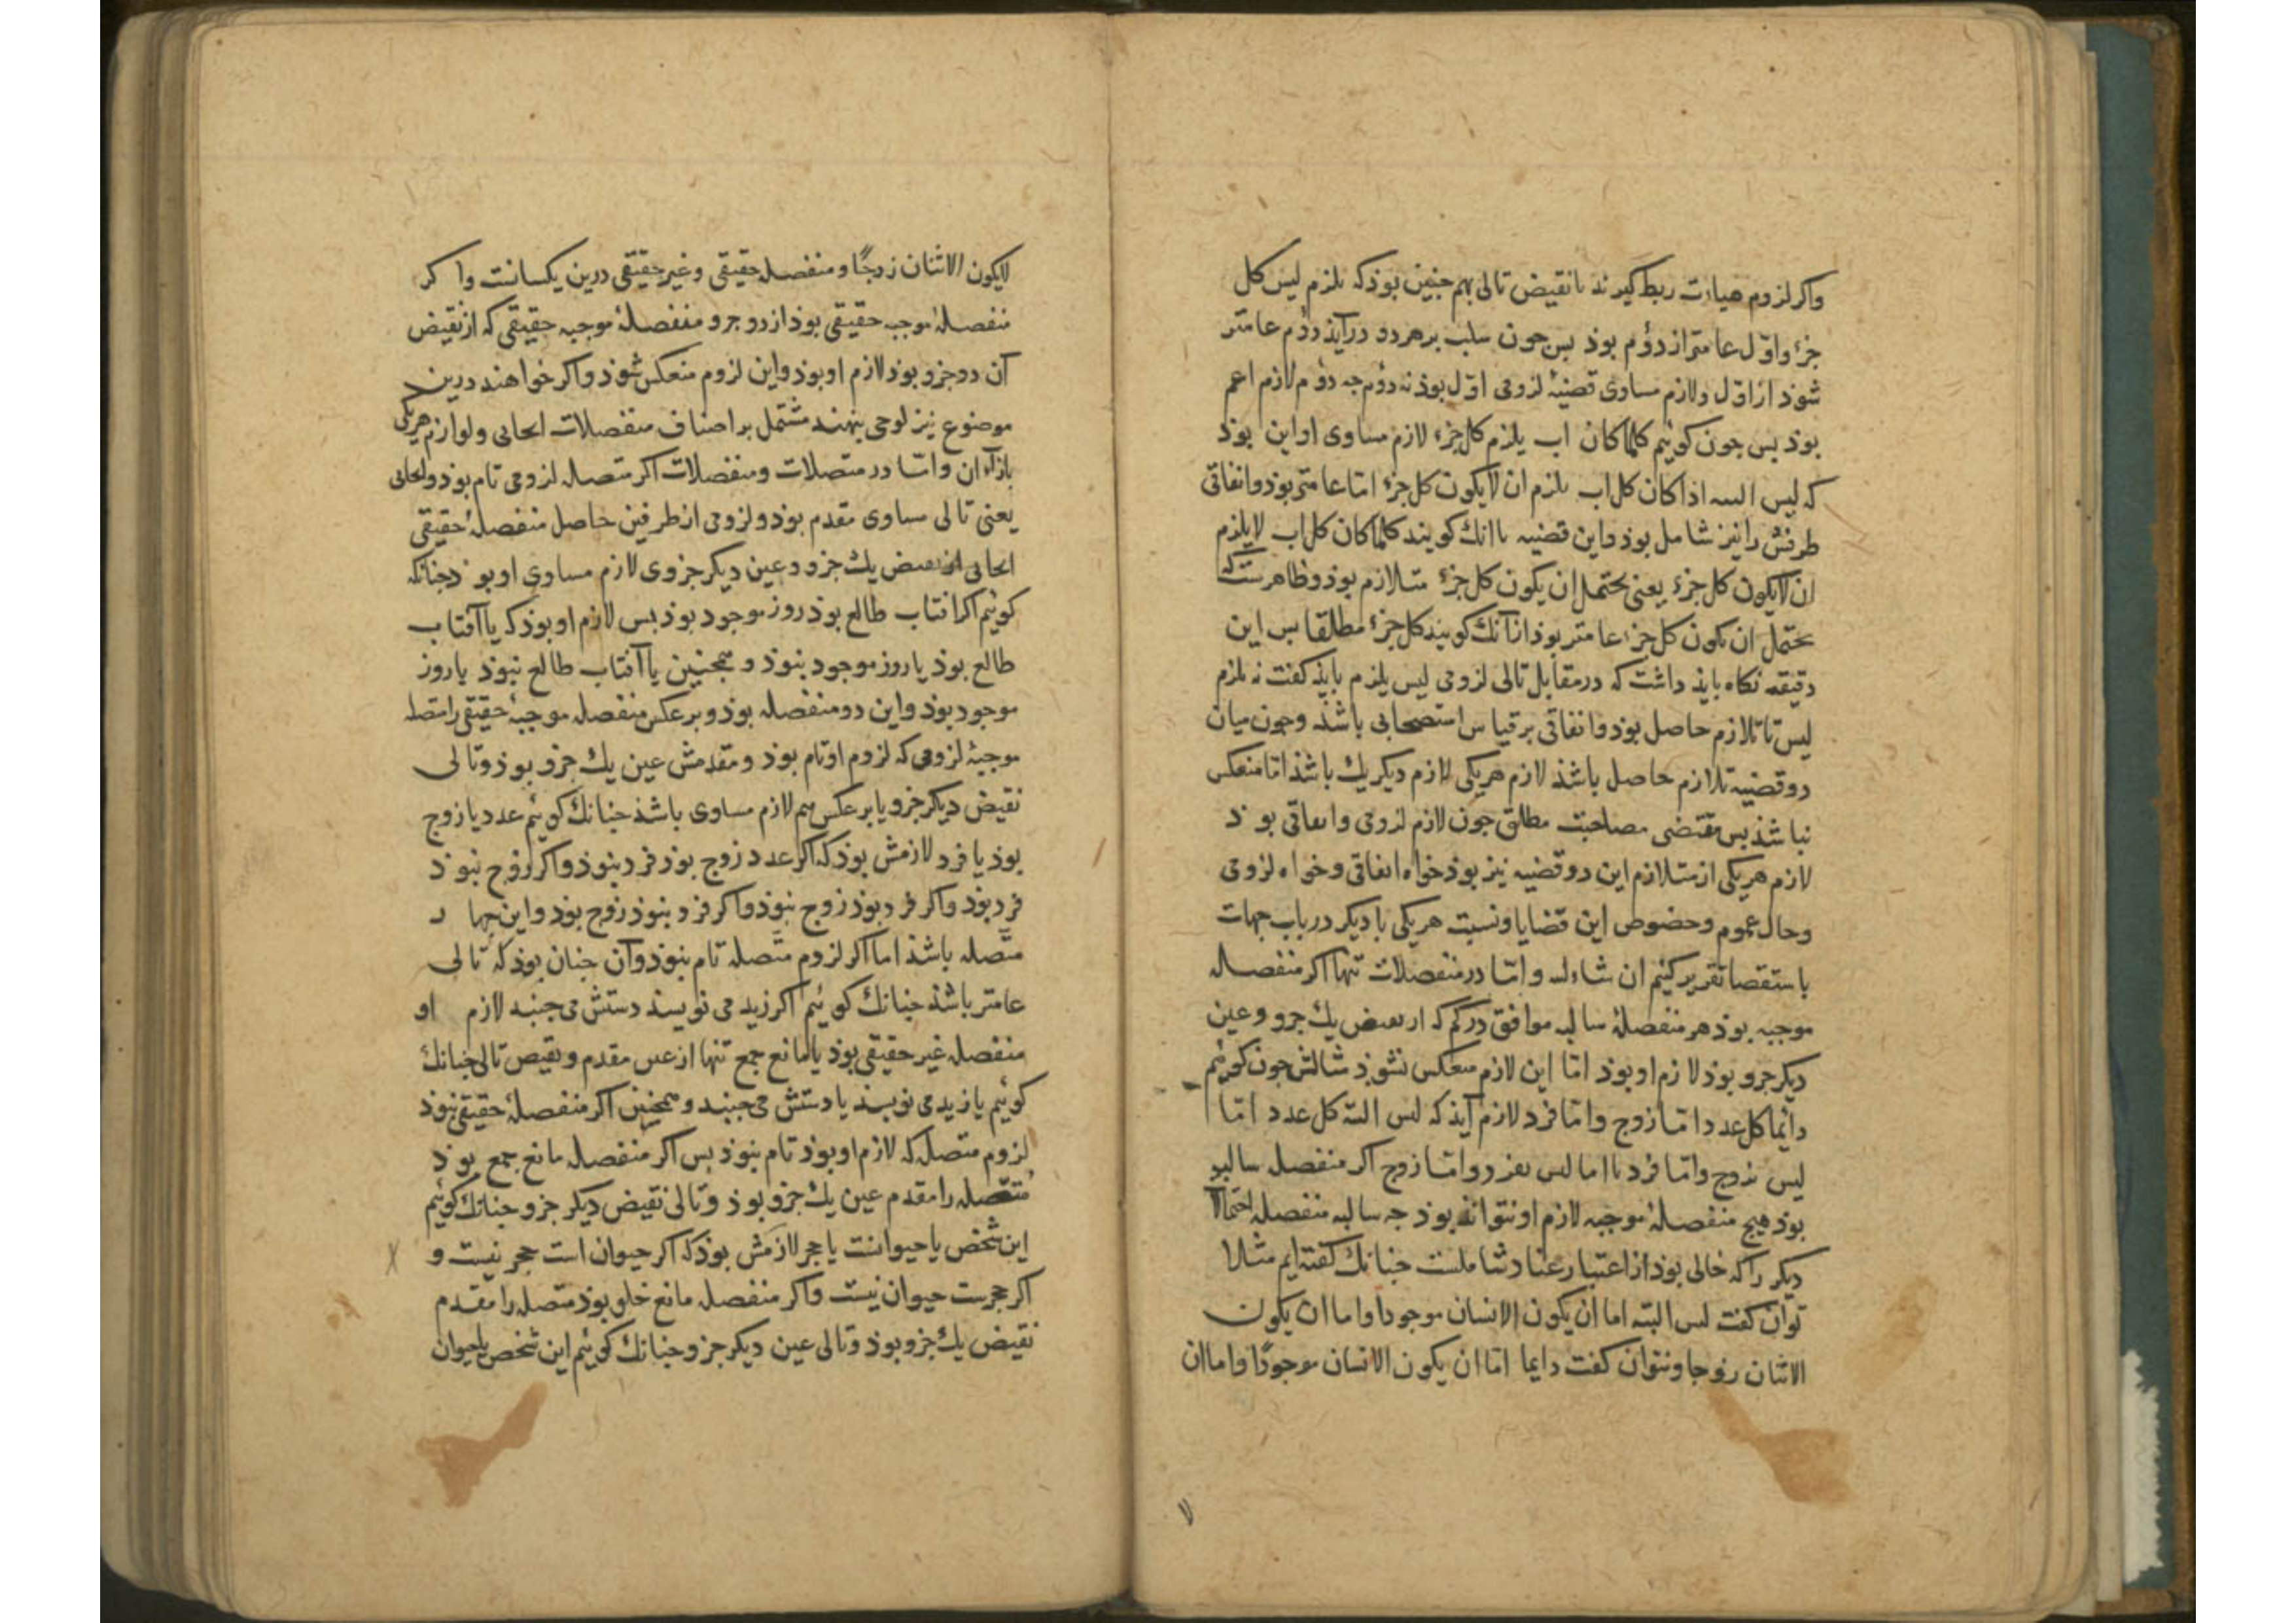 واکر لزوم هیات ربط کیرند با نقیض تالی هم جنین بوذ که یلزم لیس کل
جزء واول عامتر از دوم بوذ بس جون سلب بر هر دو درآیذ دوم عامتر
شوذ از اول ولازم مساوی قضیهٔ لزومی اول بوذ نه دوم جه دوم لازم اعم
بوذ بس جون کوئیم کلما کان اب یلزم کل جزء لازم مساوی او این بوذ
که لیس البته اذا کان کل اب یلزم ان لایکون کل جزء اما عامتر بوذ واتفاقی
طرفش را نیز شامل بوذ واین قضیه با انك کویند کلما کان کل اب لایلزم
ان لایکون کل جزء یعنی یحتمل ان یکون کل جزء متلازم بوذ وظاهرست که
یحتمل ان یکون کل جزء عامتر بوذ ازآنك کویند کل جزء مطلقا بس این
دقیقه نکاه بایذ داشت که در مقابل تالی لزومی لیس یلزم بایذ کفت نه یلزم
لیس تا تلازم حاصل بوذ واتفاقی بر قیاس استصحابی باشذ وجون میان
دو قضیه تلازم حاصل باشذ لازم هریکی لازم دیکر یك باشذ اما منعکس
نباشذ بس مقتضی مصاحبت مطلق جون لازم لزومی واتفاقی بوذ
لازم هریکی از متلازم این دو قضیه نیز بوذ خواه اتفاقی وخواه لزومی
وحال عموم وخصوص این قضایا ونسبت هریکی با دیکر در باب جهات
باستقصا تقریر کنیم ان شاءلله واما در منفصلات تنها اکر منفصله
موجبه بوذ هر منفصلهٔ سالبه موافق در کم که از نقیض یك جزو وعین
دیکر جزو بوذ لازم او بوذ اما این لازم منعکس نشوذ مثالش جون کوئیم
دائما کل عدد اما زوج واما فرد لازم آیذ که لیس البته کل عدد اما
لیس بزوج واما فرد یا اما لیس بفرد واما زوج اکر منفصل سالبه
بوذ هیج منفصلهٔ موجبه لازم او نتوانذ بوذ جه سالبه منفصله احتمالا
دیکر را که خالی بوذ از اعتبار عناد شاملست جنانك کفته ایم مثلا
توان کفت لیس البته اما ان یکون الانسان موجودا واما ان یکون
الاثنان زوجا ونتوان کفت دایما اما ان یکون الانسان موجودًا واما ان
لا
لایکون الاثنان زوجًا ومنفصله حقیقی وغیر حقیقی درین یکسانست واکر
منفصلهٔ موجبه حقیقی بوذ از دو جزو منفصلهٔ موجبه حقیقی که از نقیض
آن دو جزو بوذ لازم او بوذ واین لزوم منعکس شوذ واکر خواهند درین
موضوع نیز لوحی بنهند مشتمل بر اصناف منفصلات ایجابی ولوازم هریکی
بازاء آن واما در متصلات ومنفصلات اکر متصله لزومی تام بوذ وایجابی
یعنی تالی مساوی مقدم بوذ ولزومی از طرفین حاصل منفصلهٔ حقیقی
ایجابی از نقیض یك جزو وعین دیکر جزوی لازم مساوی او بوذ جنانکه
کوئیم اکر افتاب طالع بوذ روز موجود بوذ بس لازم او بوذ که یا آفتاب
طالع بوذ یا روز موجود نبوذ وهمجنین یا آفتاب طالع نبوذ یا روز
موجود بوذ واین دو منفصله بوذ وبر عکس منفصله موجبهٔ حقیقی را متصله
موجبهٔ لزومی که لزوم او تام بوذ ومقدمش عین یك جزو بوذ وتالی
نقیض دیکر جزو یا بر عکس هم لازم مساوی باشذ جنانك کوئیم عدد یا زوج
بوذ یا فرد لازمش بوذ که اکر عدد زوج بوذ فرد نبوذ واکر زوج نبوذ
فرد بوذ واکر فرد بوذ زوج نبوذ واکر فرد نبوذ زوج بوذ واین جهار
متصله باشذ اما اکر لزوم متصله تام نبوذ وآن جنان بوذ که تالی
عامتر باشذ جنانك کوئیم اکر زید می نویسد دستش می جنبد لازم او
منفصله غیر حقیقی بوذ یا مانع جمع تنها از عین مقدم ونقیض تالی جنانك
کوئیم یا زید می نویسد یا دستش می جنبد وهمجنین اکر منفصلهٔ حقیقی نبوذ
لزوم متصل که لازم او بوذ تام نبوذ بس اکر منفصله مانع جمع بوذ
متصله را مقدم عین یك جزو بوذ وتالی نقیض دیکر جزو جنانك کوئیم
این شخص یا حیوانست یا حجر لازمش بوذ که اکر حیوان است حجر نیست و
اکر حجرست حیوان نیست واکر منفصله مانع خلو بوذ متصله را مقدم
نقیض یك جزو بوذ وتالی عین دیکر جزو جنانك کوئیم این شخص یا حیوان